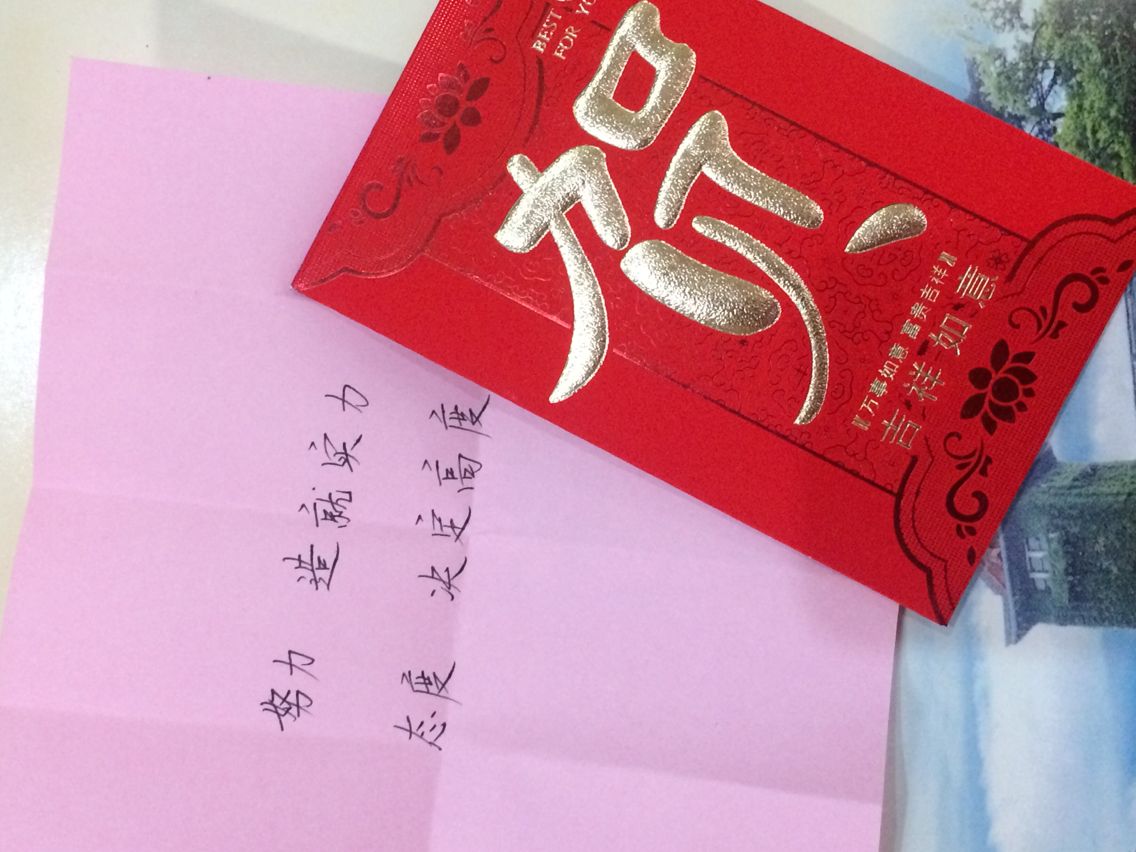 BEST
FOR YO
贺
万事如意 富贵吉祥
吉祥如意
努力 造就实力
态度 决定高度